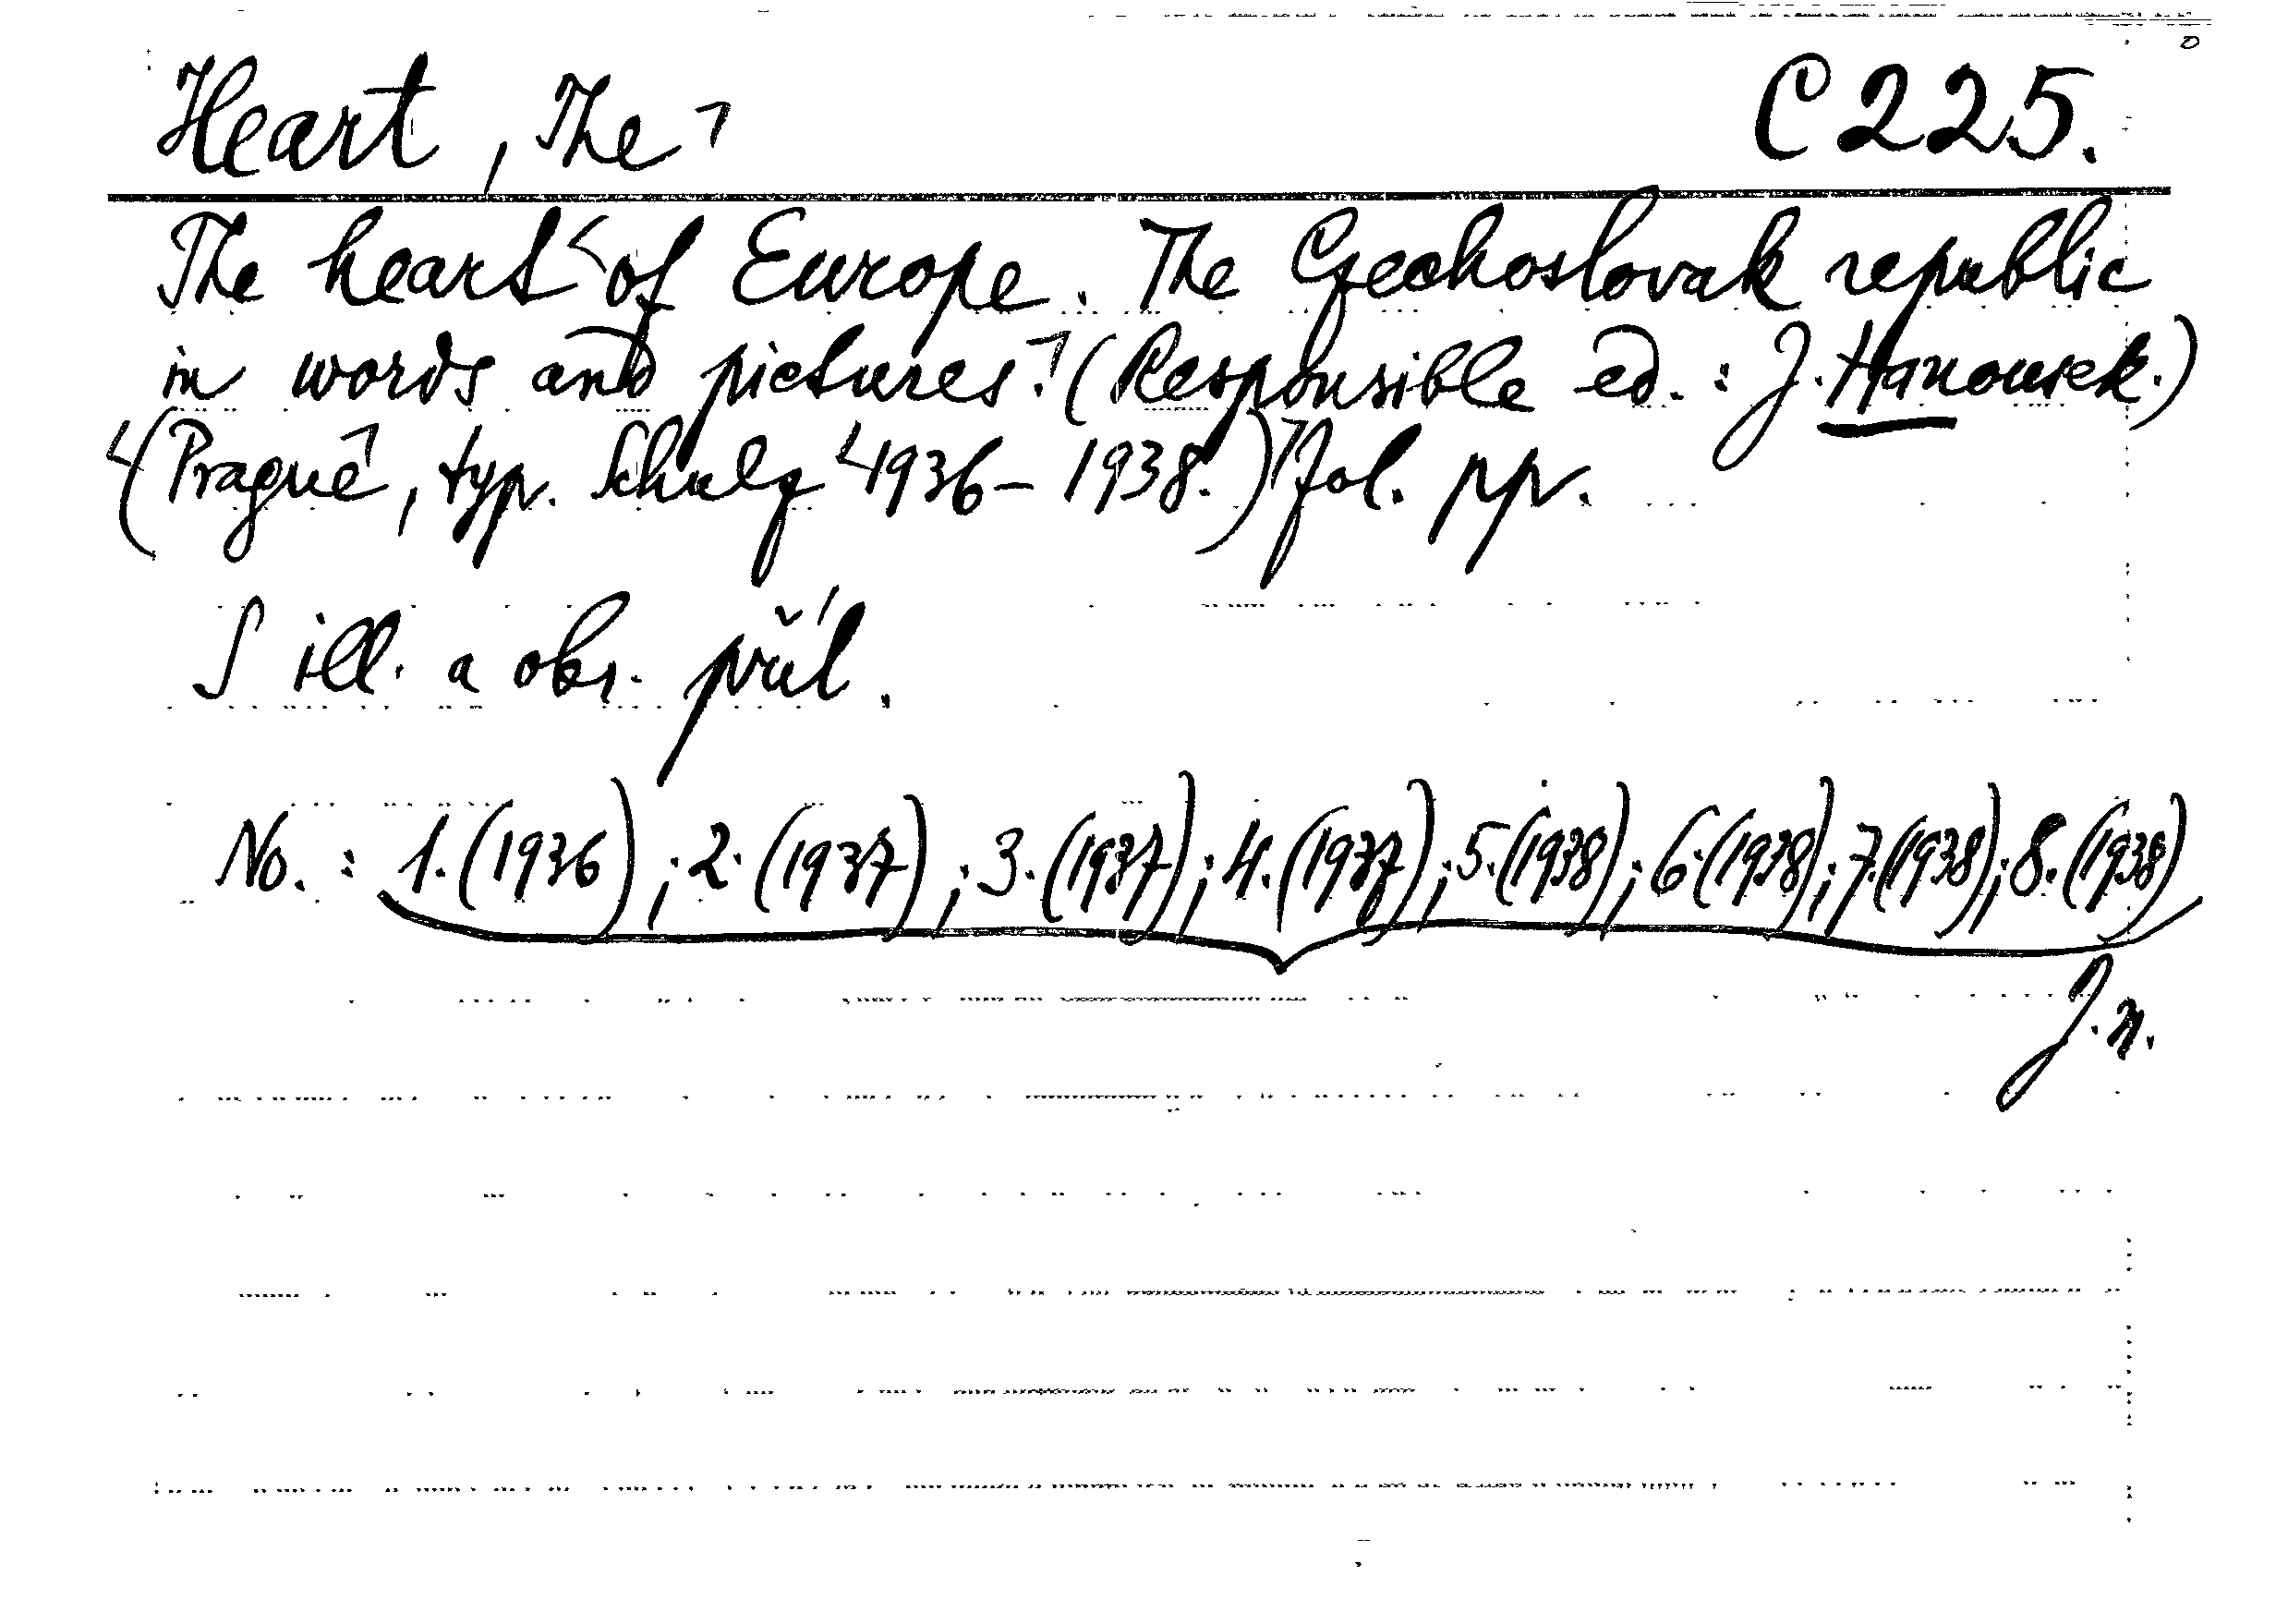 Heart, The ⌝ C 225.
The heart of Europe. The Czechoslovak republic
in words and pictures. (Responsible ed.: J. Hanousek.)
(Prague, typ. Schulz 1936–1938.) Fol. pp.
S ill. a obr. příl.
No.: 1.(1936); 2.(1937); 3.(1937); 4.(1937); 5.(1938); 6.(1938); 7.(1938); 8.(1938)
J.n.